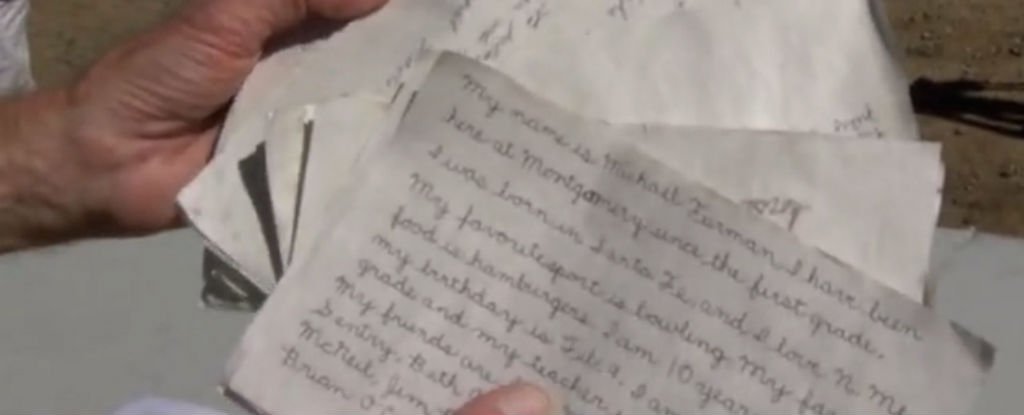 My name is Michael Zerman I have been
here at Montgomery since the first grade.
I was born in Santa Fe, and I love N. Me
My favorite sport is bowling My fav
food is hamburgers. I am 10 years
my birthday is Feb. 9, I am
grade and my teacher
My friends are
Sentry, Beth
McNeil, Jim
Brian O'